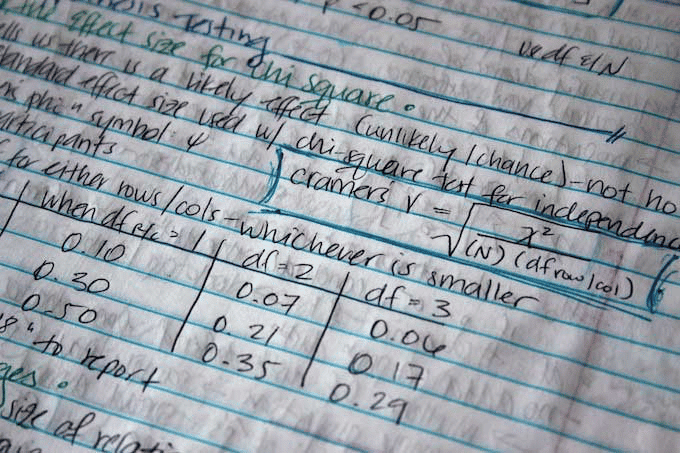 Testing p <0.05
the effect size for chi square. use df & N
us there is a likely effect (unlikely / chance) - not no
standard effect size used w/ chi-square test for independence
phi " symbol: φ cramer's V = √ x² / (N) (df row/col)
participants
for either rows/cols - whichever is smaller
when df r/c = 1 df = 2 df = 3
0.10 0.07 0.06
0.30 0.21 0.17
0.50 0.35 0.29
" to report
size of